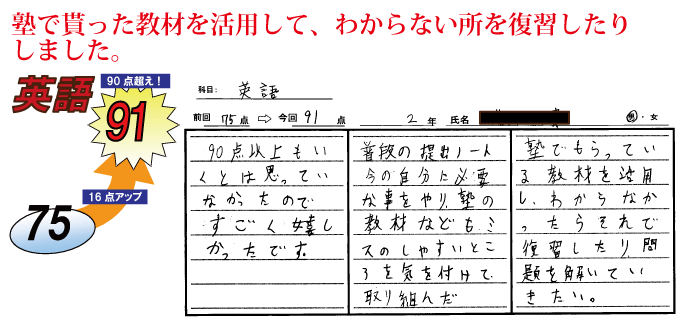 塾で貰った教材を活用して、わからない所を復習したり
しました。
英語
90点超え！
91
16点アップ
75
科目: 英語
前回 75点 ⇨ 今回 91 点
2 年 氏名
男・女
90点以上もい
くとは思ってい
なかたので
すごく嬉し
かったです。
普段の提出ノート
今の自分に必要
な事をやり、塾の
教材なども、ミ
スのしやすいとこ
ろを気を付けて、
取り組んだ
塾でもらってい
る教材を活用
し、わからなか
ったらそれで
復習したり、問
題を解いてい
きたい。